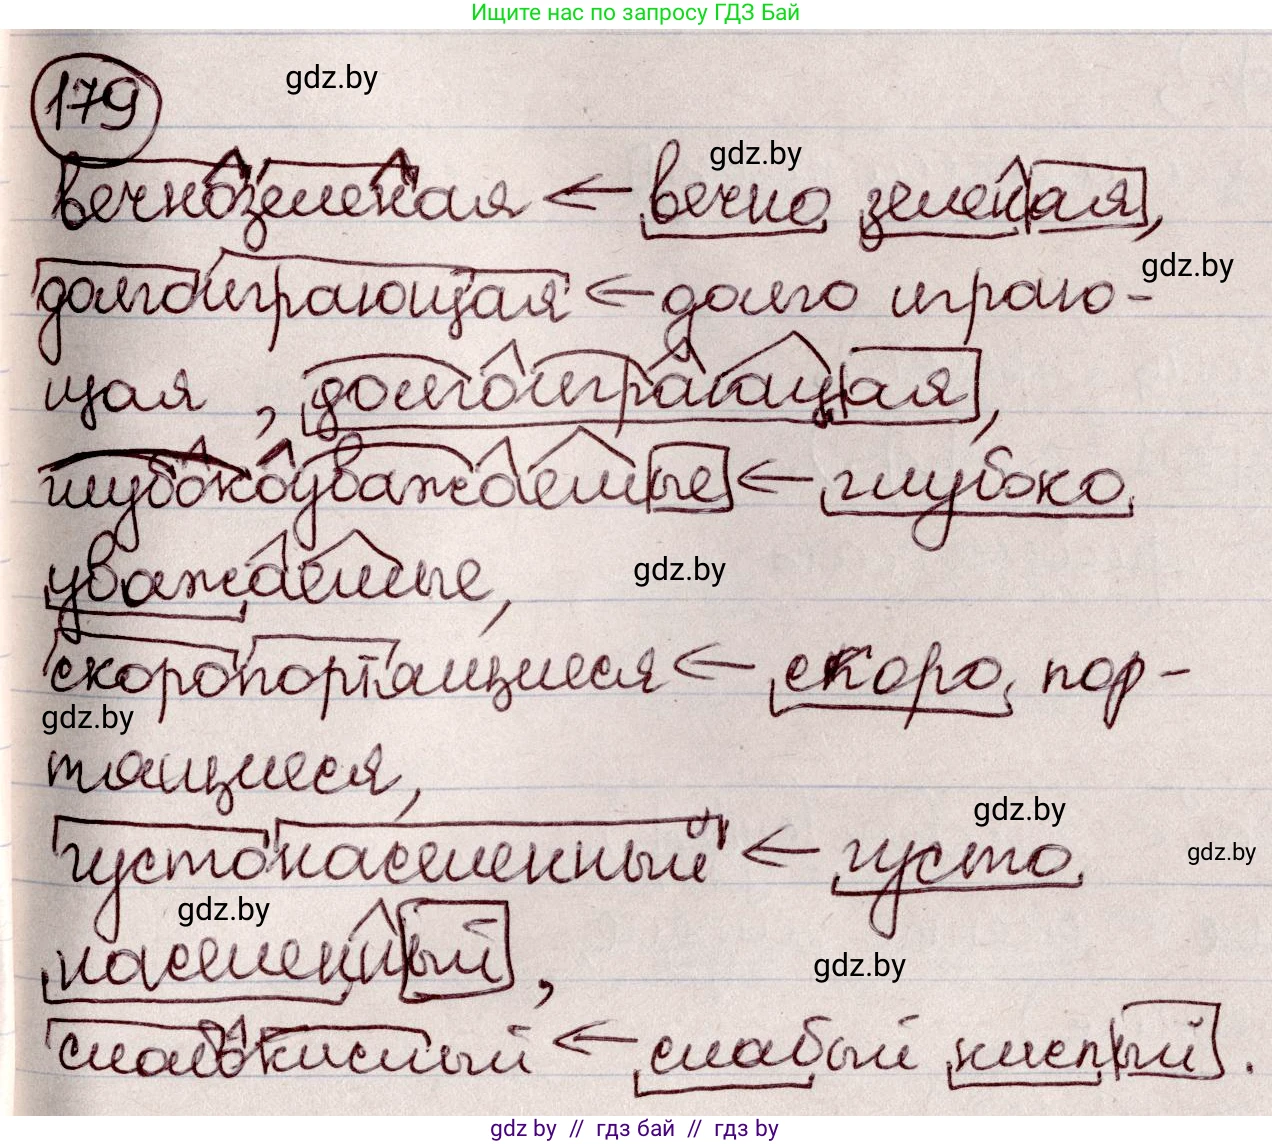 Ищите нас по запросу ГДЗ Бай
179
gdz.by
gdz.by
вечнозеленая ← вечно зеленая,
gdz.by
долгоиграющая ← долго играю-
щая, долгоиграющая,
глубокоуважаемые ← глубоко
уважаемые,
gdz.by
скоропортящиеся ← скоро пор-
gdz.by
тящиеся,
gdz.by
густонаселенный ← густо
gdz.by
gdz.by
населенный,
gdz.by
слабокислый ← слабый кислый.
gdz by // гдз бай // гдз by